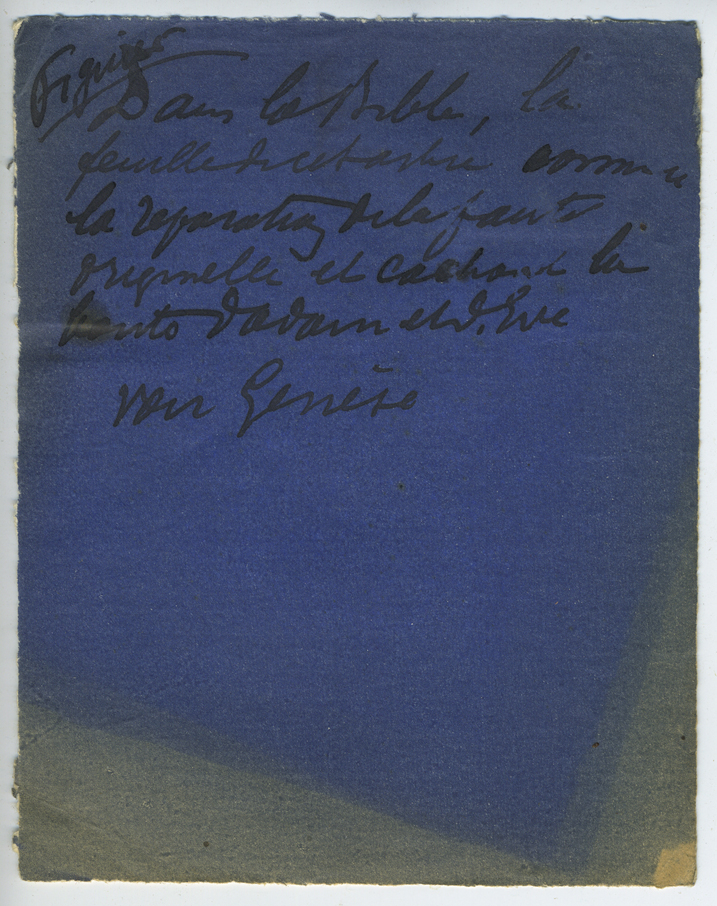 Figuier
Dans la Bible, la
feuille de cet arbre comme
la reparation de la faute
originelle et cachant la
honte d'adam et d'Eve
voir Genèse